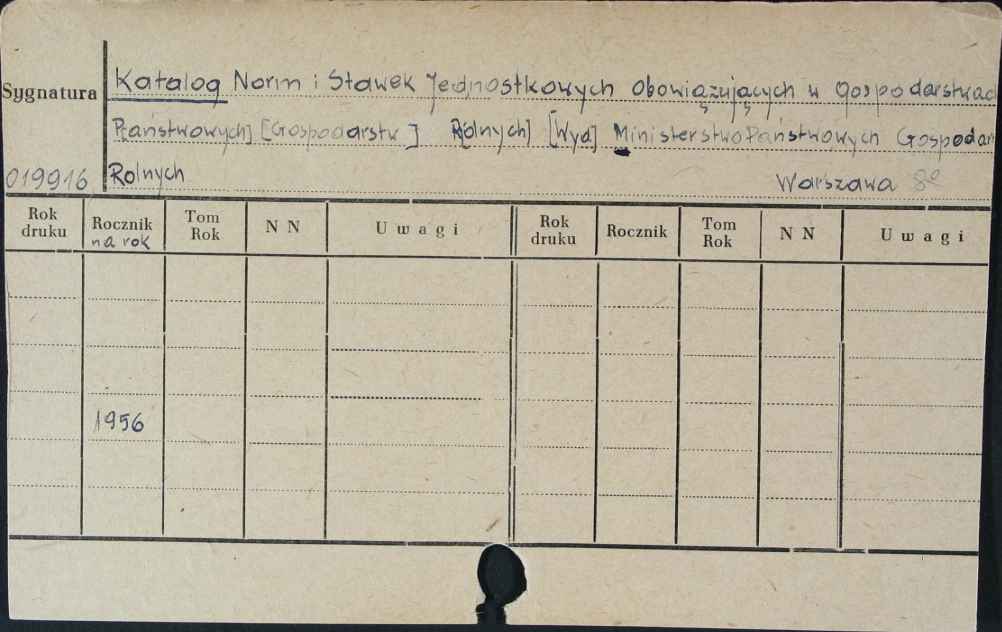 Sygnatura
Katalog Norm i Stawek Jednostkowych obowiązujących w Gospodarstwac
Państwowych] [Gospodarstw] Rolnych] [Wyd] Ministerstwo Państwowych Gospodar
019916 Rolnych Warszawa 8º
Rok druku Rocznik na rok Tom Rok N N Uwagi Rok druku Rocznik Tom Rok N N Uwagi
1956